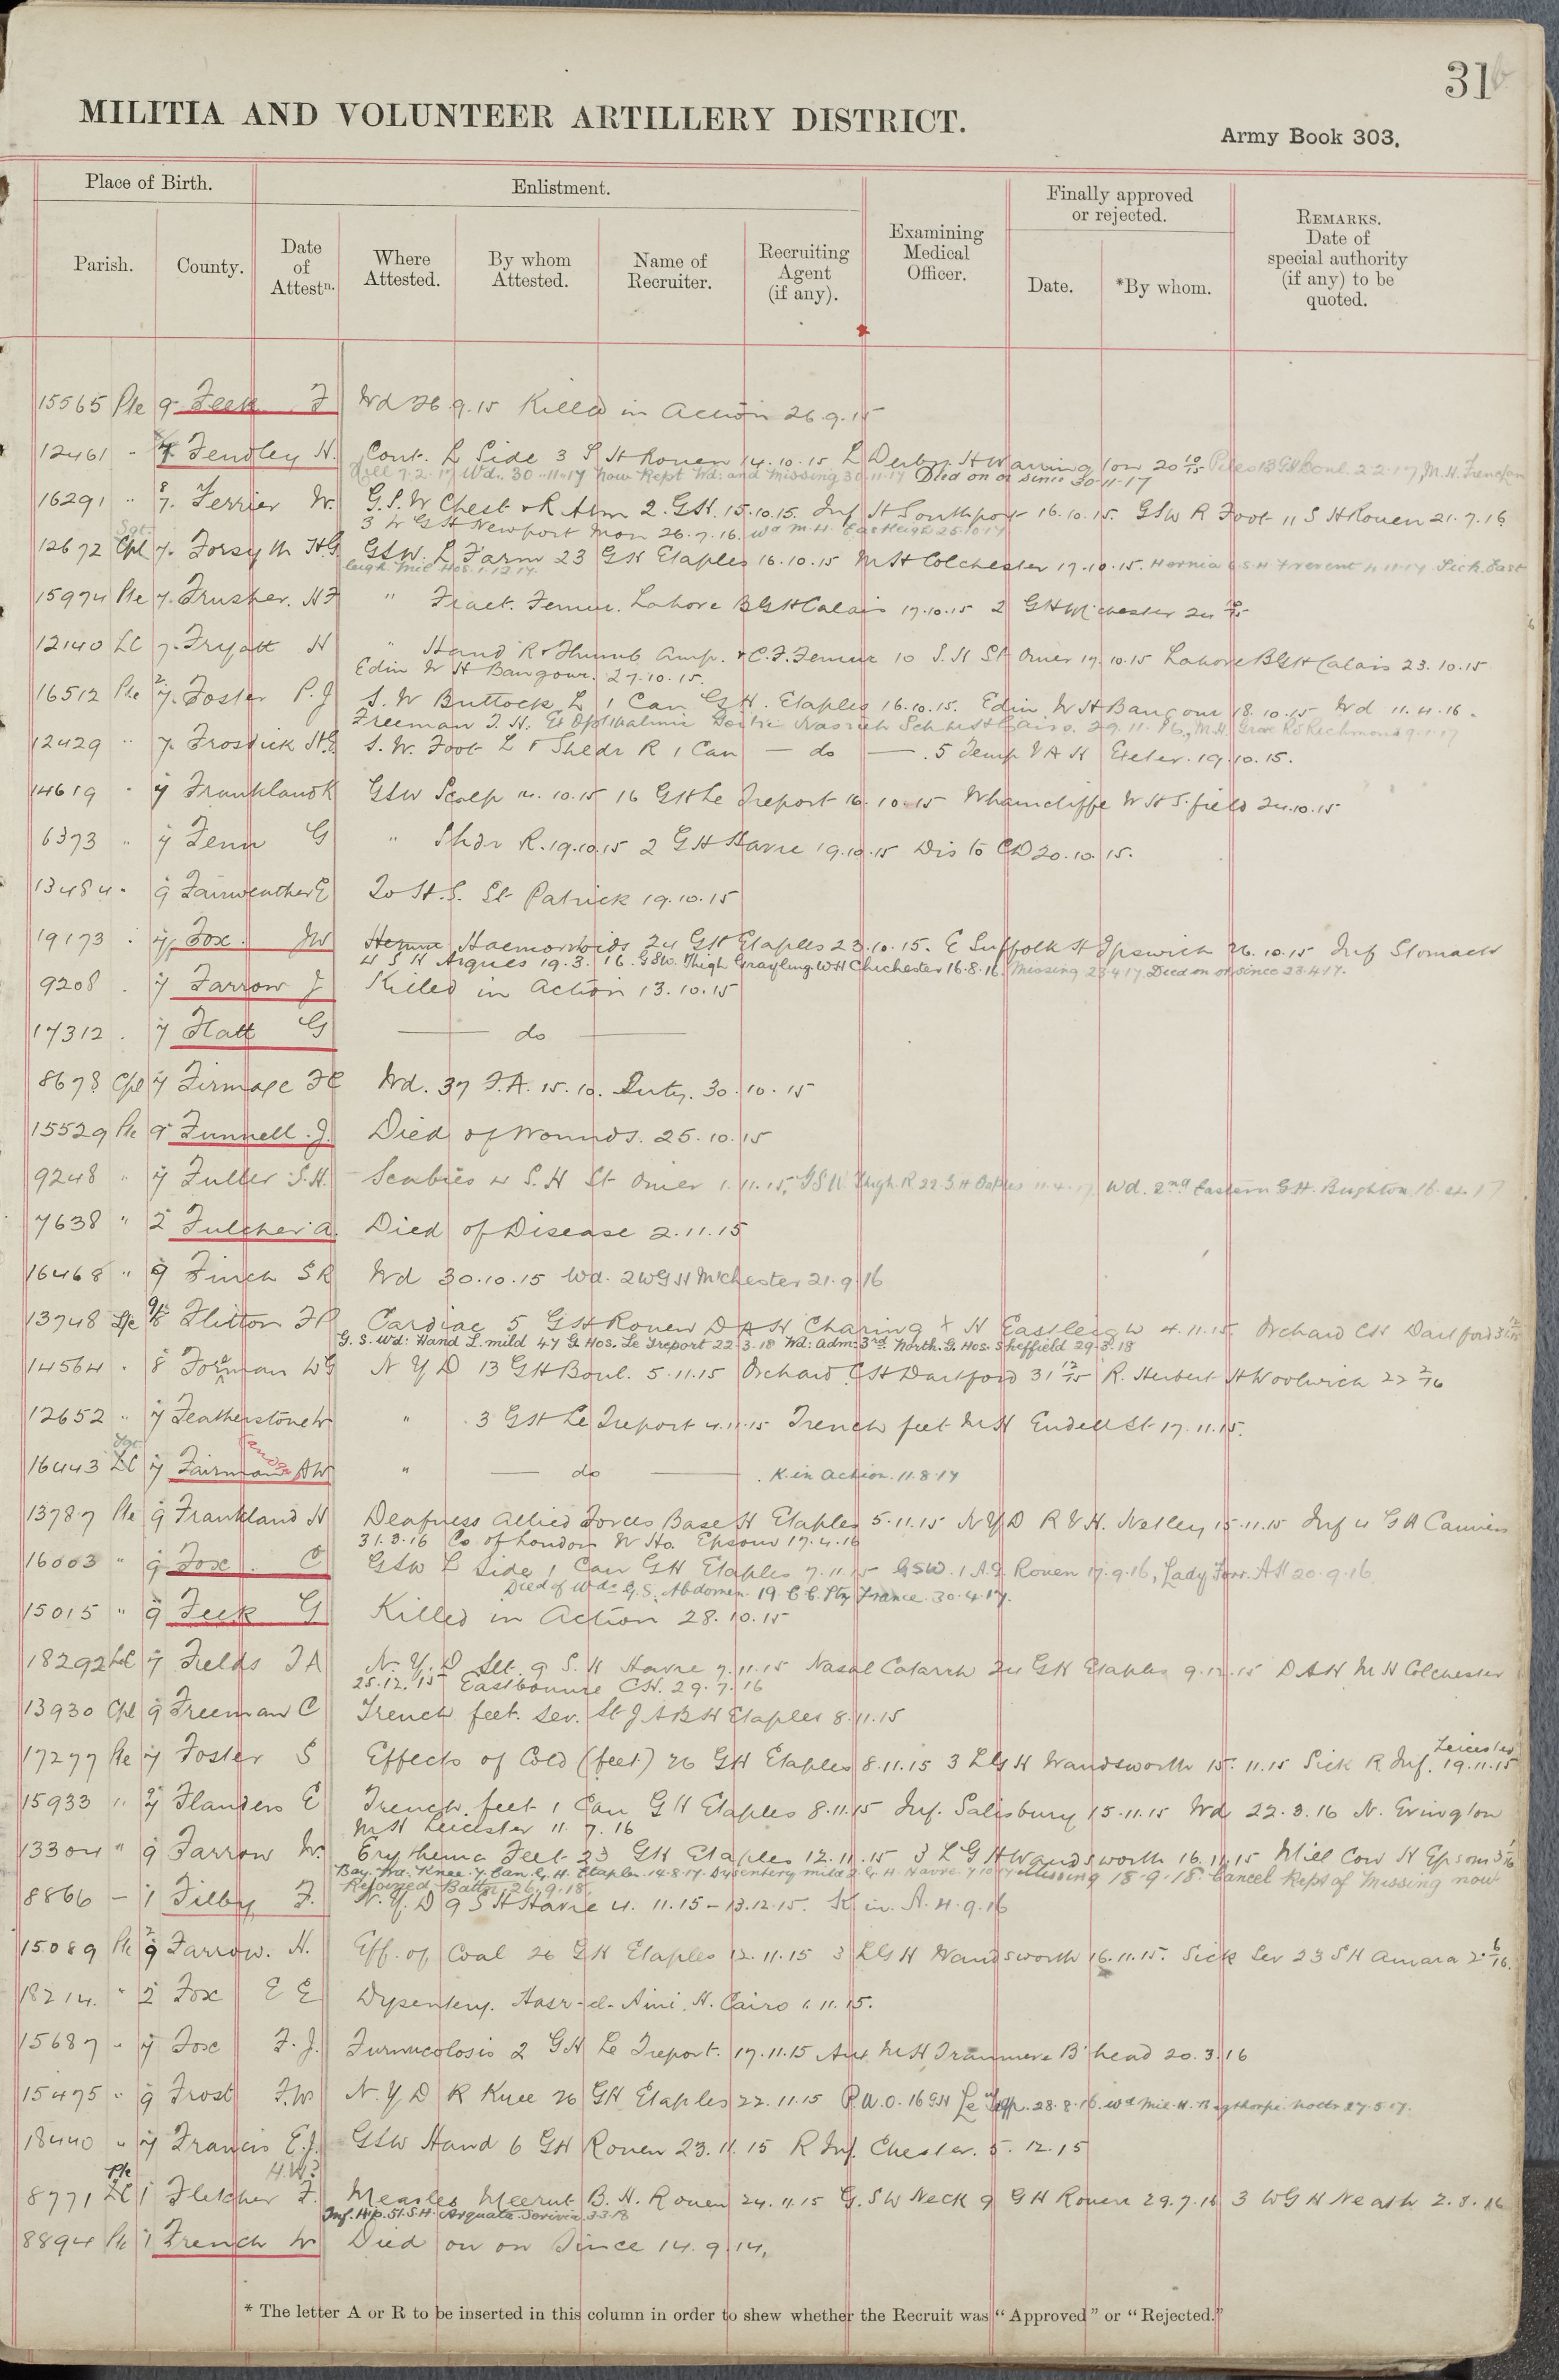 31b
MILITIA AND VOLUNTEER ARTILLERY DISTRICT.
Army Book 303.
Place of Birth.
Enlistment.
Finally approved or rejected.
Parish.
County.
Date of Attestn.
Where Attested.
By whom Attested.
Name of Recruiter.
Recruiting Agent (if any).
Examining Medical Officer.
Date.
*By whom.
REMARKS. Date of special authority (if any) to be quoted.
15565 Pte 9 Feek F Wd 26.9.15 Killed in Action 26.9.15
12461 " 7 Fendley H. Cont. L Side 3 S H Rouen 14.10.15 L Derby H Warrington 20 10/15 13 GH Boul. 2.2.17, M.H. Frensham
7.2.17 Wd. 30-11-17 Now Rept Wd: and Missing 30-11-17 Died on or since 30-11-17
16291 " 8 7. Ferrier W. G.S.W Chest & R Arm 2. G.H. 15.10.15. Inf H Southport 16.10.15. GSW R Foot 11 S H Rouen 21.7.16
3 W G H Newport Mon 26.7.16. Wd M.H. Eastleigh 25.10.17
12672 Sgt Cpl 7. Forsyth H.G. GSW. L Farm 23 GH Etaples 16.10.15 M H Colchester 17.10.15. Hernia 6 S.H Frevent 11.11.17 Sick. East
leigh Mil Hos. 1.12.17.
15974 Pte 7. Frusher. H F " Fract. Femur. Lahore B G H Calais 17.10.15 2 G H M'chester 24
12140 LC 7. Fryatt H " Hand R & Thumb Amp. & C.F. Femur 10 S.H St Omer 17.10.15 Lahore B G H Calais 23.10.15
Edin W H Bangour. 27.10.15.
16512 Pte 2 7. Foster P.J S. W Buttock, L 1 Can G H. Etaples 16.10.15. Edin W H Bangour 18.10.15 Wd 11.4.16.
Freeman J. H. Nasrieh Sch H Cairo. 29.11.16, M.H. Grove Rd Richmond 9.1.17
12429 " 7. Frostick H.G. S. W. Foot L & Shldr R 1 Can — do — . 5 Temp V A H Exeter. 19.10.15.
14619 " 7 Frankland K GSW Scalp 14.10.15 16 GH Le Treport 16.10.15 Wharncliffe W H S.field 24.10.15
6373 " 7 Fenn G " Shdr R. 19.10.15 2 G H Havre 19.10.15 Dis to CD 20.10.15.
13484 " 9 Fairweather E To H.S. St Patrick 19.10.15
19173 . 7 Fox. JW Haemorrhoids 24 GH Etaples 23.10.15. E Suffolk H Ipswich 26.10.15 Inf Stomach
4 S H Arques 19.3.16. GSW. Thigh Grayling W H Chichester 16.8.16 Missing 28.4.17 Died on or since 28.4.17.
9208 . 7 Farrow J Killed in Action 13.10.15
17312 . 7 Flatt G — do —
8678 Cpl 7 Firmage F C Wd. 37 F.A. 15.10. Duty. 30.10.15
15529 Pte 9 Funnell. J. Died of Wounds. 25.10.15
9248 " 7 Fuller S.H. Scabies 4 S. H St Omer 1.11.15. G S W Thigh. R 22 G H 11.4.17 Wd. 2nd Eastern G H. Brighton. 16.4.17
7638 " 2 Fulcher A. Died of Disease 2.11.15
16468 " 9 Finch S R Wd 30.10.15 Wd. 2 W G H M'chester 21.9.16
13748 9/8 Flitton F P Cardiac 5 GH Rouen D A H Charing X H Eastleigh 4.11.15. Orchard C H Dartford
G. S. Wd: Hand L. mild 47 G. Hos. Le Treport 22-3-18 Wd: Adm: 3rd North. G. Hos. Sheffield 29-3-18
14564 . 8 Foreman W G N Y D 13 GH Boul. 5.11.15 Orchard C H Dartford 31 12/15 R. Herbert H Woolwich 22 2/16
12652 " 7 Featherstone W " . 3 GH Le Treport 4.11.15 Trench feet M H Endell St 17.11.15.
16443 Sgt LC 7 Fairman A W " — do — . K. in Action. 11.8.17
13787 Pte 9 Frankland H Deafness Allied Forces Base H Etaples 5.11.15 N Y D R V H. Netley 15.11.15 Inf 4 G H Camiers
31.3.16 Co. of London W Ho. Epsom 17.4.16
16003 " 9 Fox. C GSW L Side 1 Can GH Etaples 7.11.15 GSW. 1 A.G Rouen 17.9.16, Lady Forr. A H 20.9.16
Died of Wds G.S. Abdomen. 19. C C. Stn France. 30.4.17.
15015 " 9 Feek G Killed in Action 28.10.15
18292 LC 7 Fields J A N. Y. D Slt. 9 S. H Havre 7.11.15 Nasal Catarrh 24 GH Etaples 9.12.15 D A H M H Colchester
25.12.15 Eastbourne C H. 29.7.16
13930 Cpl 9 Freeman C Trench feet. Sev. St J A B H Etaples 8.11.15
17277 Pte 7 Foster S Effects of Cold (feet) 26 GH Etaples 8.11.15 3 L G H Wandsworth 15.11.15 Sick R Inf. Leicester 19.11.15
15933 " 7 Flanders E Trench. feet 1 Can GH Etaples 8.11.15 Inf. Salisbury 15.11.15 Wd 22.3.16 N. Evington
M H Leicester 11.7.16
13304 " 9 Farrow W. Erythema Feet 23 GH Etaples 12.11.15 3 L G H Wandsworth 16.11.15 Mill Cow H Epsom
Bay. Wd. Knee. 7. Can. G. H. Etaples. 14.8.17. Dysentery mild 2 G. H. Havre. Missing 18-9-18. Cancel Rept of Missing now
Rejoined Battn 26.9.18.
8866 — 1 Filby F. N. Y. D 9 S H Havre 4.11.15 – 13.12.15. K in. A. 4.9.16
15089 Pte 9 Farrow. H. Eff. of Coal 26 GH Etaples 12.11.15 3 L G H Wandsworth 16.11.15. Sick Sev 23 S H Amara 2. 6/16.
18214. " 2 Fox E E Dysentery. Kasr-el-Aini. H. Cairo 1.11.15.
15687 " 7 Fox F. J. Furnucolosis 2 GH Le Treport. 17.11.15 Aux M H Tranmere B'head 20.3.16
15475 " 9 Frost F.W N. Y D R Knee 26 GH Etaples 22.11.15 P.U.O. 16 GH Le Trep. 28.8.16. Wd Mil. H. Bagthorpe Notts 27.5.17.
18440 " 7 Francis E.J. GSW Hand 6 GH Rouen 23.11.15 R Inf. Chester. 5.12.15
H.W?
8771 Pte LC 1 Fletcher F. Measles Meerut B. H. Rouen 24.11.15 G.SW Neck 9 GH Rouen 29.7.16 3 W G H Neath 2.8.16
Inf. Hip. 51. S.H. Arquata Scrivia 3.3.18
8894 Pte 1 French W Died on or Since 14.9.14.
* The letter A or R to be inserted in this column in order to shew whether the Recruit was “Approved” or “Rejected.”